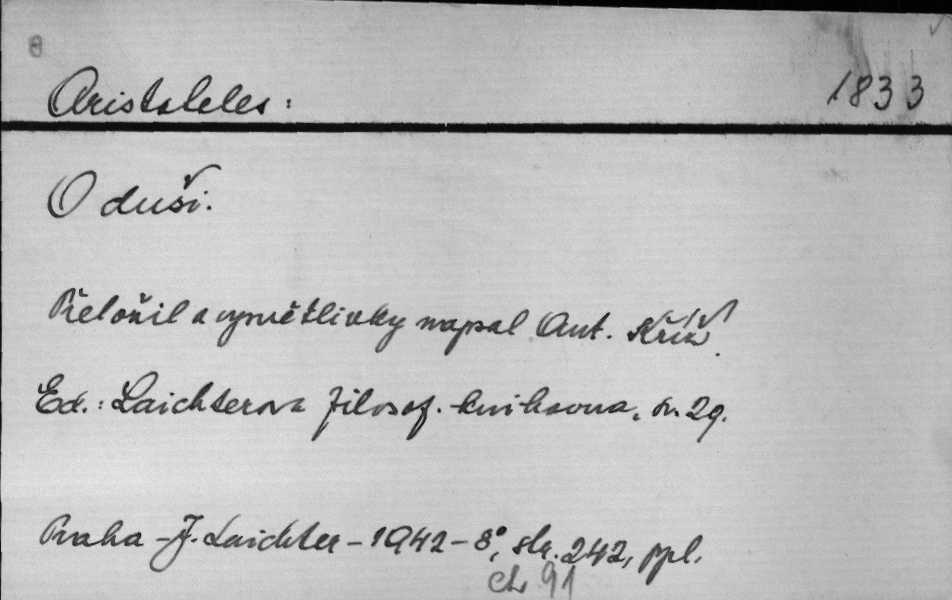 Aristoteles: 1833
O duši.
Přeložil a vysvětlivky napsal Ant. Kříž.
Ed.: Laichterova filosof. knihovna, sv. 29.
Praha - J. Laichter - 1942 - 8°, str. 242, ppl.
ch 91